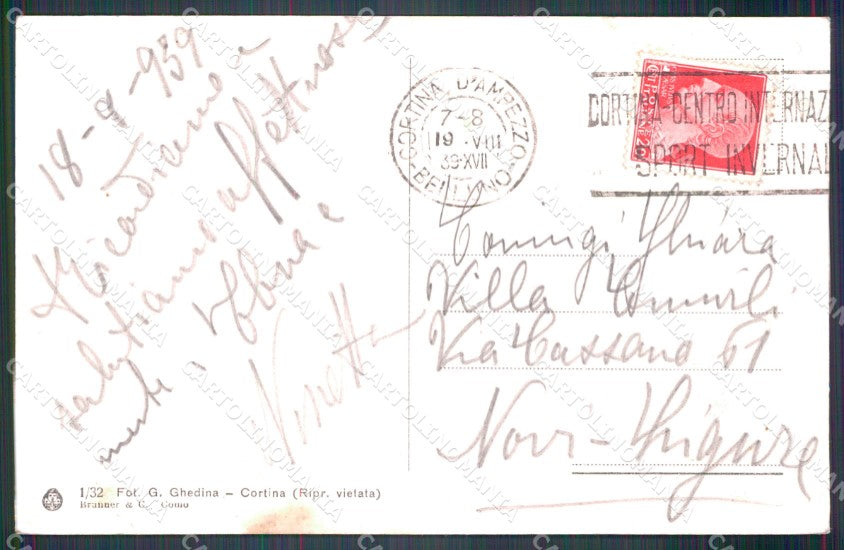 18-8-939
Ricordiamo e
salutiamo affettuosa
mente
Elena e
Ninetta
CORTINA D'AMPEZZO
7-8
19 VIII
39·XVII
BELLUNO
CORTINA CENTRO INTERNAZI
SPORT INVERNAL
Ghiara
Villa
Via Cassano 61
Novi-Ligure
1/32 Fot. G. Ghedina – Cortina (Ripr. vietata)
Brunner & C. Como
CARTOLINOMANIA